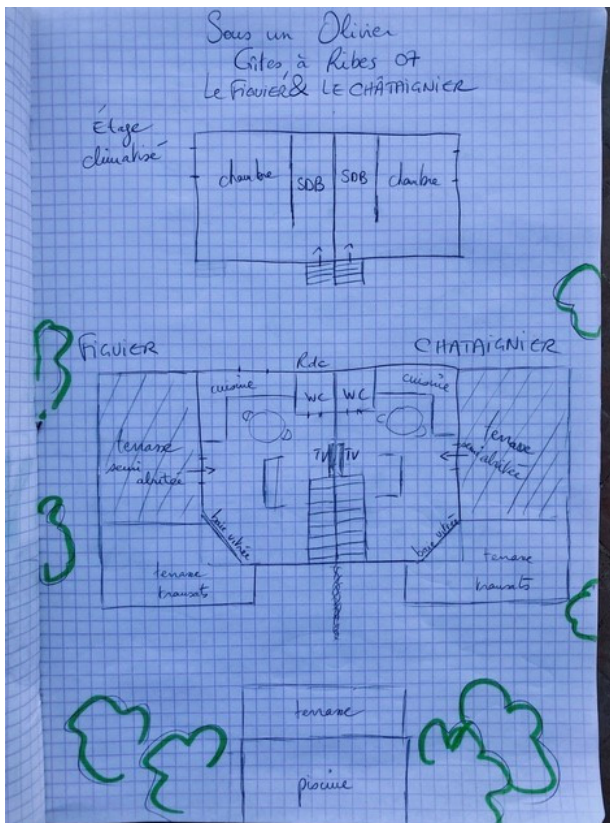 Sous un Olivier
Gîtes à Ribes 07
LE FIGUIER & LE CHÂTAIGNIER
Étage
climatisé
chambre
SDB
SDB
chambre
FIGUIER
Rdc
CHATAIGNIER
cuisine
WC
WC
cuisine
terrasse
semi
abritée
TV
TV
terrasse
semi abritée
baie vitrée
baie vitrée
terrasse
transats
terrasse
transats
terrasse
piscine